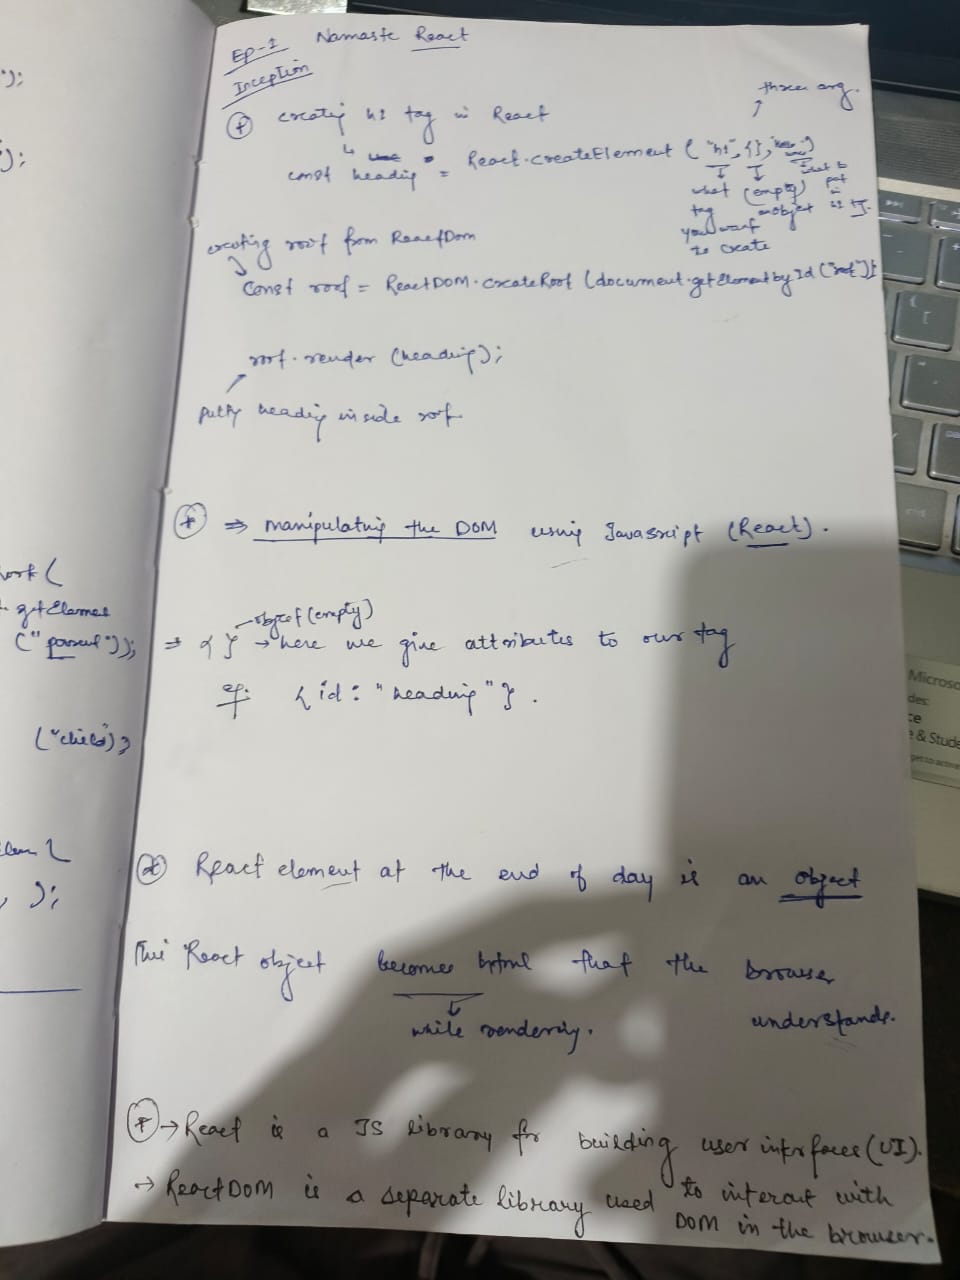 ");
);
ork (
. getElemen
("parent"));
("child"),
lem
, );
Ep-1 Namaste React
Inception
three arg.
creating h1 tag in React
const heading = React.createElement ("h1", {}, )
what (empty) what to
tag object put
you want in
to create h1 tag.
creating root from ReactDom
Const root = ReactDOM.createRoot (document.getElementbyId ("root"));
root.render (heading);
putting heading inside root
⇒ manipulating the DOM using Javascript (React).
object (empty)
⇒ { } → here we give attributes to our tag
eg: { id: "heading" }.
React element at the end of day is an object
This React object becomes html that the browser
understands.
while rendering.
→ React is a JS library for building user interfaces (UI).
→ ReactDOM is a separate library used to interact with
DOM in the browser.
Microso
des:
ce
e & Stude
get to active